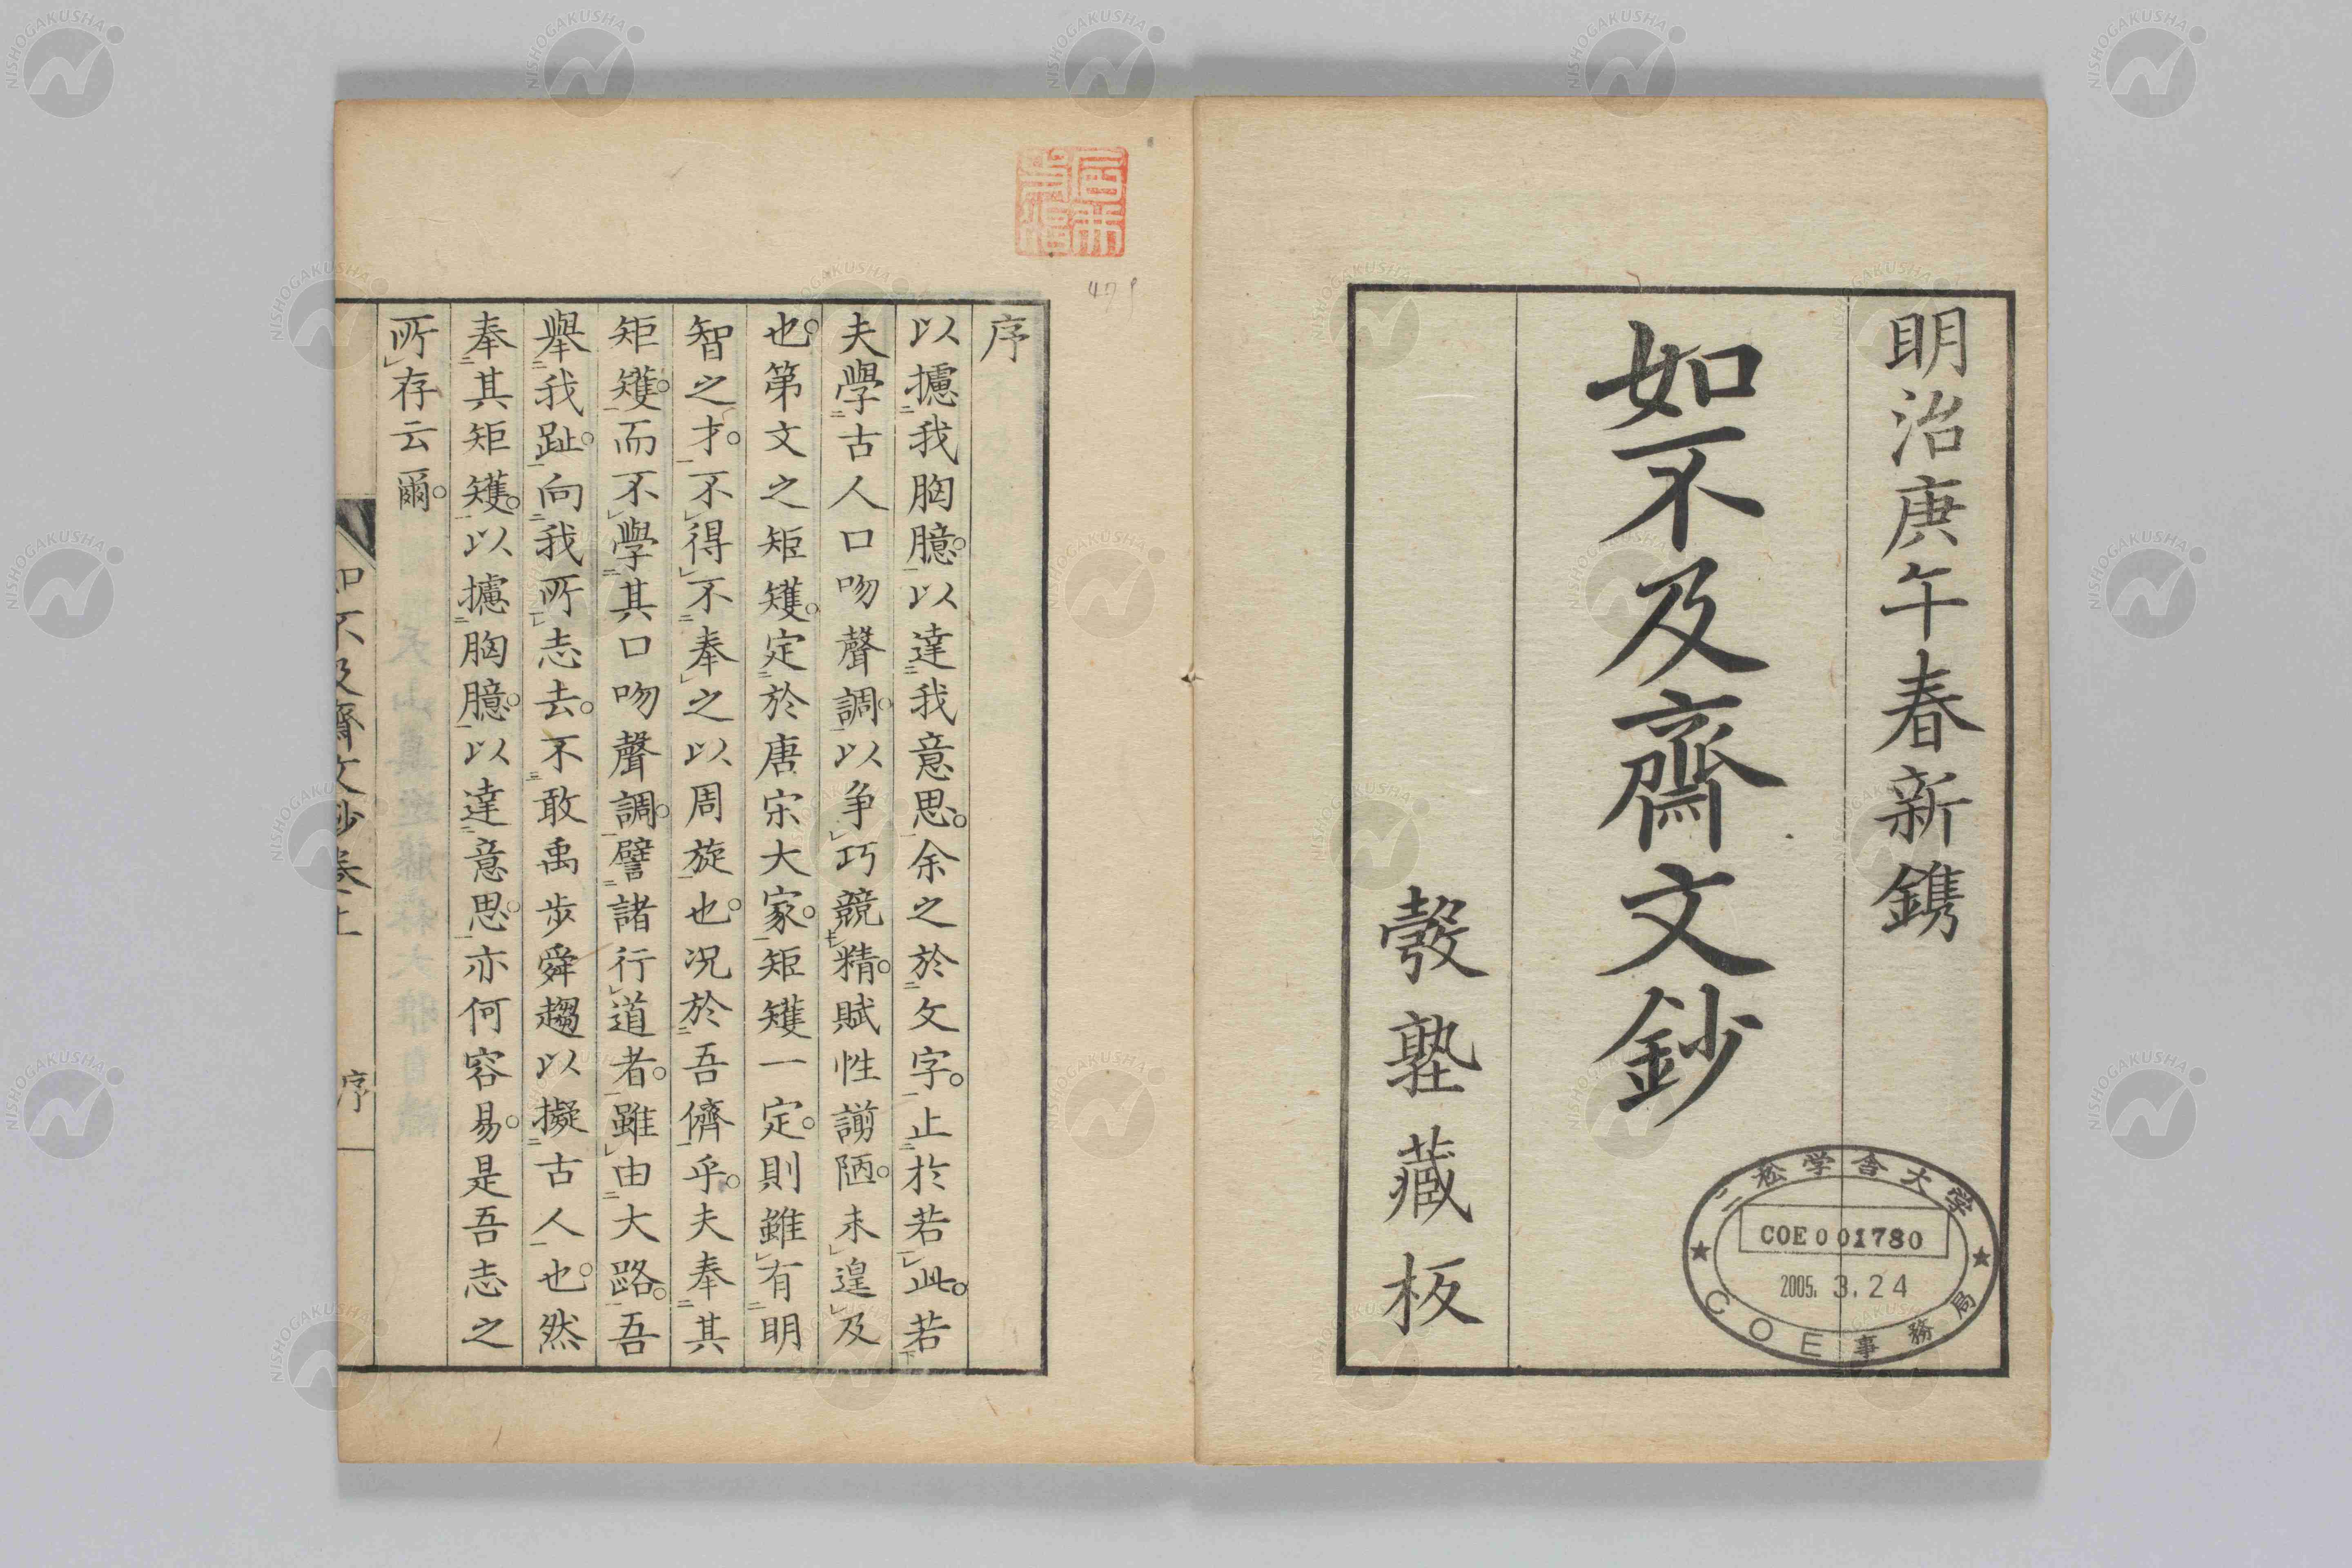 明治庚午春新鐫
如不及齋文鈔
彀塾藏板
二松学舎大学
COE001780
2005. 3. 24
COE事務局
序
以攄我胸臆。以達我意思。余之於文字。止於若此。若
夫學古人口吻聲調。以争巧競精。賦性謭陋。未遑及
也。第文之矩矱。定於唐宋大家。矩矱一定。則雖有明
智之才。不得不奉之以周旋也。况於吾儕乎。夫奉其
矩矱。而不學其口吻聲調。譬諸行道者。雖由大路。吾
舉我趾。向我所志去。不敢禹步舜趨以擬古人也。然
奉其矩矱。以攄胸臆。以達意思。亦何容易。是吾志之
所存云爾。
如不及齋文鈔卷上
序
一
NISHOGAKUSHA